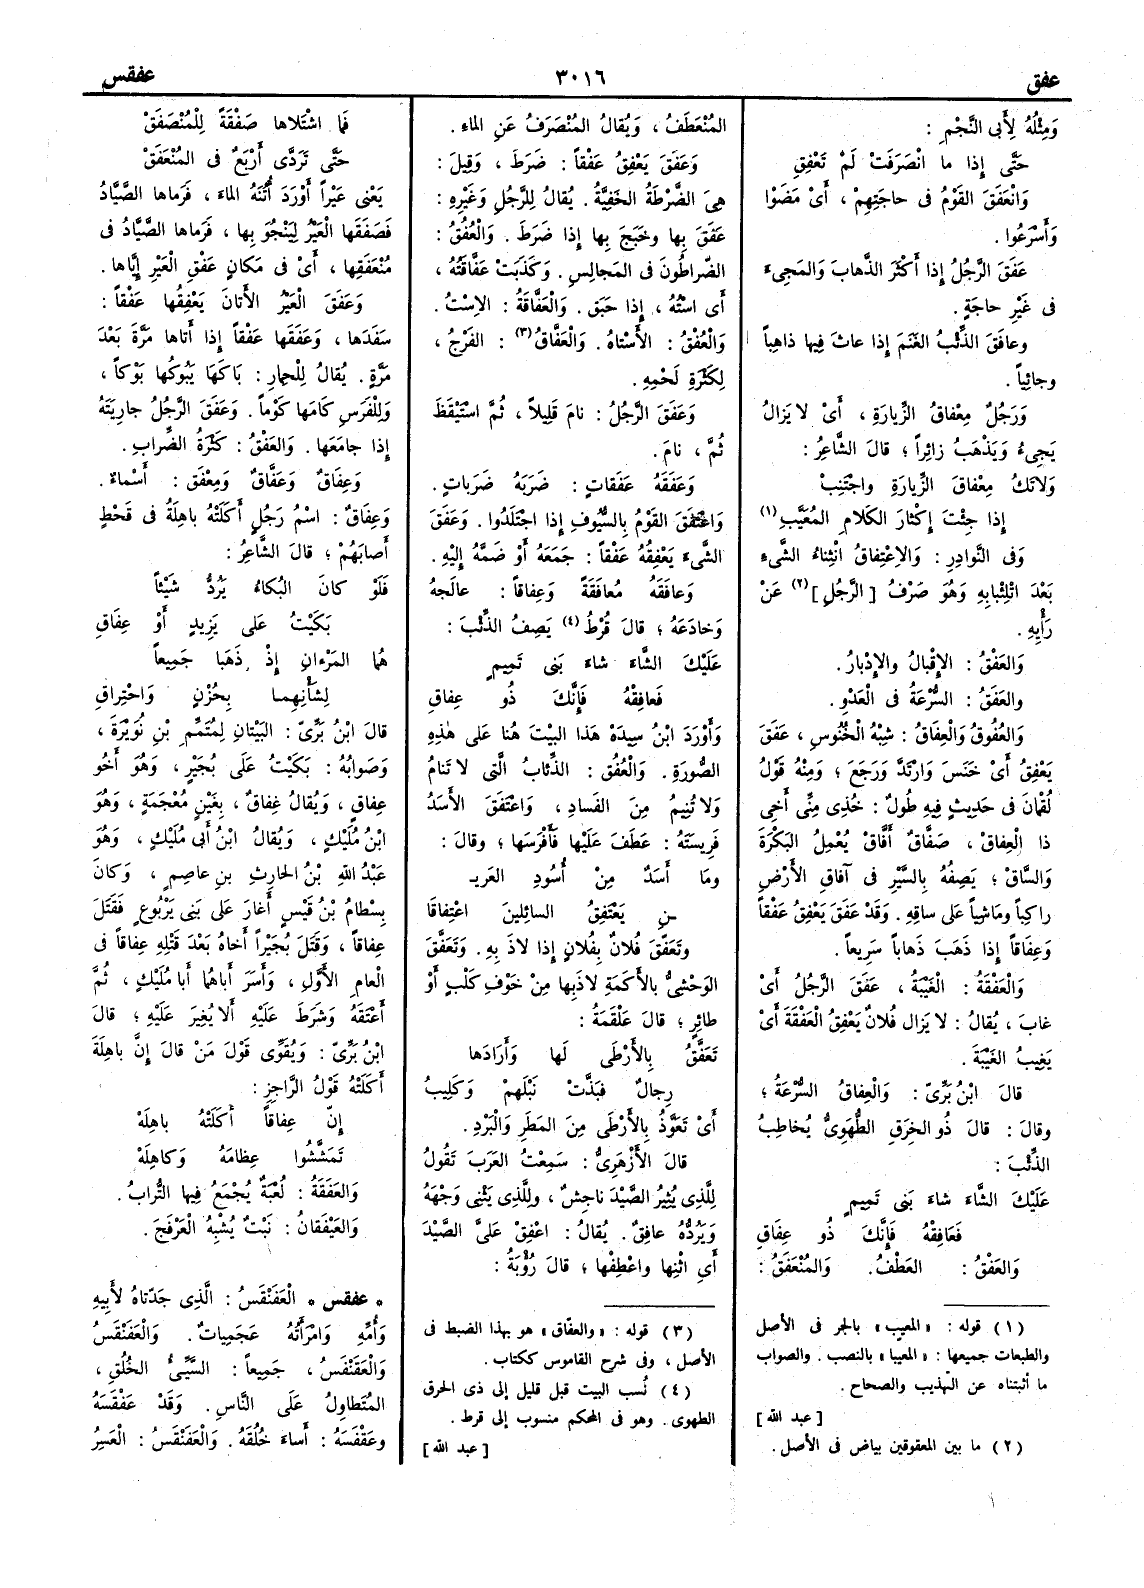 عفق
٣٠١٦
عفقس
وَمِثْلُهُ لِأَبِى النَّجْمِ :
حَتَّى إِذا ما انْصَرَفَتْ لَمْ تَعْفِقِ
وَانْعَفَقَ القَوْمُ فى حاجَتِهِمْ ، أَىْ مَضَوْا
وَأَسْرَعُوا .
عَفَقَ الرَّجُلُ إِذا أَكْثَرَ الذَّهابَ وَالمَجِىءَ
فى غَيْرِ حاجَةٍ .
وعافَقَ الذِّئْبُ الغَنَمَ إِذا عاثَ فِيها ذاهِباً
وجائِياً .
وَرَجُلٌ مِعْفاقُ الزِّيارَةِ ، أَىْ لا يَزالُ
يَجِىءُ وَيَذْهَبُ زائِراً ؛ قالَ الشَّاعِرُ :
وَلاتَكُ مِعْفاقَ الزِّيارَةِ واجْتَنِبْ
إِذا جِئْتَ إِكْثارَ الكَلامِ المُعَيَّبِ (١)
وَفى النَّوادِرِ : وَالاِعْتِفاقُ انْثِناءُ الشَّىْءِ
بَعْدَ اتْلِئْبابِهِ وَهُوَ صَرْفُ [ الرَّجُلِ ] (٢) عَنْ
رَأْيِهِ .
وَالعَفْقُ : الإِقْبالُ والإِدْبارُ .
والعَفَقُ : السُّرْعَةُ فى الْعَدْوِ .
وَالعُفُوقُ وَالعِفاقُ : شِبْهُ الْخُنُوسِ ، عَفَقَ
يَعْفِقُ أَىْ خَنَسَ وَارْتَدَّ وَرَجَعَ ؛ وَمِنْهُ قَوْلُ
لُقْمانَ فى حَدِيثٍ فِيهِ طُولٌ : خُذِى مِنِّى أَخِى
ذا الْعِفاقْ ، صَفَّاقٌ أَفَّاقْ يُعْمِلُ البَكْرَةَ
وَالسَّاقْ ؛ يَصِفُهُ بِالسَّيْرِ فى آفاقِ الأَرْضِ
راكِباً ومَاشِياً عَلى ساقِهِ . وَقَدْ عَفَقَ يَعْفِقُ عَفْقاً
وَعِفاقاً إِذا ذَهَبَ ذَهاباً سَرِيعاً .
وَالعَفْقَةُ : الغَيْبَةُ ، عَفَقَ الرَّجُلُ أَىْ
غابَ ، يُقالُ : لا يَزالُ فُلانٌ يَعْفِقُ العَفْقَةَ أَىْ
يَغِيبُ الغَيْبَةَ .
قالَ ابْنُ بَرِّىّ : وَالْعِفاقُ السُّرْعَةُ ؛
وقالَ : قالَ ذُو الخِرَقِ الطُّهَوِىُّ يُخاطِبُ
الذِّئْبَ :
عَلَيْكَ الشَّاءَ شاءَ بَنى تَمِيمٍ
فَعافِقْهُ فَإِنَّكَ ذُو عِفَاقِ
وَالعَفْقُ : العَطْفُ . وَالمُنْعَفَقُ :
(١) قوله : «المعيب» بالجر فى الأصل
والطبعات جميعها : «المعيبا» بالنصب . والصواب
ما أثبتناه عن التهذيب والصحاح .
[ عبد الله ]
(٢) ما بين المعقوفين بياض فى الأصل .
المُنْعَطَفُ ، وَيُقالُ المُنْصَرَفُ عَنِ الماءِ .
وَعَفَقَ يَعْفِقُ عَفْقاً : ضَرَطَ ، وَقِيلَ :
هِىَ الضَّرْطَةُ الخَفِيَّةُ . يُقالُ لِلرَّجُلِ وَغَيْرِهِ :
عَفَقَ بِها وخَبَجَ بِها إِذا ضَرَطَ . وَالْعُفُقُ :
الضّراطُونَ فى المَجالِسِ . وَكَذَبَتْ عَفَّاقَتُهُ ،
أَى اسْتُهُ ، إِذا حَبَقَ . وَالْعَفَّاقَةُ : الاِسْتُ .
وَالْعُفُقُ : الأَسْتاهُ . وَالعَفَّاقُ (٣) : الفَرْجُ ،
لِكَثْرَةِ لَحْمِهِ .
وَعَفَقَ الرَّجُلُ : نامَ قَلِيلاً ، ثُمَّ اسْتَيْقَظَ
ثُمَّ ، نامَ .
وَعَفَقَهُ عَفَقاتٍ : ضَرَبَهُ ضَرَباتٍ .
وَاعْتَفَقَ القَوْمُ بِالسُّيُوفِ إِذا اجْتَلَدُوا . وَعَفَقَ
الشَّىْءَ يَعْفِقُهُ عَفْقاً : جَمَعَهُ أَوْ ضَمَّهُ إِلَيْهِ .
وَعافَقَهُ مُعافَقَةً وَعِفاقاً : عالَجَهُ
وَخادَعَهُ ؛ قالَ قُرْطٌ (٤) يَصِفُ الذِّئْبَ :
عَلَيْكَ الشَّاءَ شاءَ بَنى تَمِيمٍ
فَعافِقْهُ فَإِنَّكَ ذُو عِفاقِ
وَأَوْرَدَ ابْنُ سِيدَهْ هَذا البَيْتَ هُنا عَلى هٰذِهِ
الصُّورَةِ . وَالْعُفُقُ : الذِّئابُ الَّتى لا تَنامُ
وَلا تُنِيمُ مِنَ الفَسادِ . وَاعْتَفَقَ الأَسَدُ
فَرِيسَتَهُ : عَطَفَ عَلَيْها فَأَفْرَسَها ؛ وقالَ :
ومَا أَسَدٌ مِنْ أُسُودِ العَريـ
ـنِ يَعْتَفِقُ السائِلينَ اعْتِفاقَا
وتَعَفَّقَ فُلانٌ بِفُلانٍ إِذا لاذَ بِهِ . وَتَعَفَّقَ
الوَحْشِىُّ بالأَكَمَةِ لاذَ بِها مِنْ خَوْفِ كَلْبٍ أَوْ
طائِرٍ ؛ قالَ عَلْقَمَةُ :
تَعَفَّقُ بِالأَرْطَى لَها وَأَرَادَها
رِجالٌ فَبَذَّتْ نَبْلَهُمْ وَكَلِيبُ
أَىْ تَعَوَّذُ بِالأَرْطَى مِنَ المَطَرِ وَالْبَرْدِ .
قالَ الأَزْهَرِىُّ : سَمِعْتُ العَرَبَ تَقُولُ
لِلَّذِى يُثِيرُ الصَّيْدَ ناجِشٌ ، ولِلَّذِى يَثْنِى وَجْهَهُ
وَيَرُدُّهُ عافِقٌ . يُقالُ : اعْفِقْ عَلَىَّ الصَّيْدَ
أَىِ اثْنِها واعْطِفْها ؛ قالَ رُؤْبَةُ :
(٣) قوله : «والعفّاق» هو بهذا الضبط فى
الأصل ، وفى شرح القاموس ككتاب .
(٤) نُسب البيت قبل قليل إلى ذى الخرق
الطهوى . وهو فى المحكم منسوب إلى قرط .
[ عبد الله ]
فَمَا اشْتَلاها صَفْقَةً لِلْمُنْصَفَقْ
حَتَّى تَرَدَّى أَرْبَعٌ فى المُنْعَفَقْ
يَعْنى عَيْراً أَوْرَدَ أُتُنَهُ الماءَ ، فَرماها الصَّيَّادُ
فَصَفَقَها العَيْرُ لِيَنْجُوَ بِها ، فَرَماها الصَّيَّادُ فى
مُنْعَفَقِها ، أَىْ فى مَكانِ عَفْقِ العَيْرِ إِيَّاها .
وَعَفَقَ العَيْرُ الأَتانَ يَعْفِقُها عَفْقاً :
سَفَدَها ، وَعَفَقَها عَفْقاً إِذا أَتاها مَرَّةً بَعْدَ
مَرَّةٍ . يُقالُ لِلْحِمارِ : بَاكَهَا يَبُوكُها بَوْكاً ،
وَلِلْفَرَسِ كَامَها كَوْماً . وَعَفَقَ الرَّجُلُ جارِيَتَهُ
إِذا جامَعَها . وَالعَفْقُ : كَثْرَةُ الضِّرابِ .
وَعِفاقٌ وَعَفَّاقٌ وَمِعْفَقٌ : أَسْماءٌ .
وَعِفاقٌ : اسْمُ رَجُلٍ أَكَلَتْهُ باهِلَةُ فى قَحْطٍ
أَصابَهُمْ ؛ قالَ الشَّاعِرُ :
فَلَوْ كانَ البُكاءُ يَرُدُّ شَيْئاً
بَكَيْتُ عَلَى يَزِيدٍ أَوْ عِفاقِ
هُما المَرْءَانِ إِذْ ذَهَبَا جَمِيعاً
لِشَأْنِهِما بِحُزْنٍ وَاحْتِراقِ
قالَ ابْنُ بَرِّىّ : البَيْتانِ لِمُتَمِّمِ بْنِ نُوَيْرَةَ ،
وَصَوابُهُ : بَكَيْتُ عَلَى بُجَيْرٍ ، وَهُوَ أَخُو
عِفاقٍ ، وَيُقالُ غِفاقٌ ، بِغَيْنٍ مُعْجَمَةٍ ، وَهُوَ
ابْنُ مُلَيْكٍ ، وَيُقالُ ابْنُ أَبى مُلَيْكٍ ، وَهُوَ
عَبْدُ اللهِ بْنُ الحارِثِ بنِ عاصِمٍ ، وَكانَ
بِسْطامُ بْنُ قَيْسٍ أَغارَ عَلَى بَنى يَرْبُوعٍ فَقَتَلَ
عِفاقاً ، وَقَتَلَ بُجَيْراً أَخاهُ بَعْدَ قَتْلِهِ عِفاقاً فى
الْعامِ الأَوَّلِ ، وَأَسَرَ أَباهُما أَبا مُلَيْكٍ ، ثُمَّ
أَعْتَقَهُ وَشَرَطَ عَلَيْهِ أَلا يُغِيرَ عَلَيْهِ ؛ قالَ
ابْنُ بَرِّىّ : وَيُقَوِّى قَوْلَ مَنْ قالَ إِنَّ باهِلَةَ
أَكَلَتْهُ قَوْلُ الرَّاجِزِ :
إِنَّ عِفاقاً أَكَلَتْهُ باهِلَهْ
تَمَشَّشُوا عِظامَهُ وَكاهِلَهْ
وَالعَفَقَةُ : لُعْبَةٌ يُجْمَعُ فِيها التُّرابُ .
وَالعَيْفَقانُ : نَبْتٌ يُشْبِهُ الْعَرْفَجَ .
* عفقس * الْعَفَنْقَسُ : الَّذِى جَدَّتاهُ لأَبِيهِ
وَأُمِّهِ وَامْرَأَتُهُ عَجَمِياتٌ . وَالْعَفَنْقَسُ
وَالْعَقَنْفَسُ ، جَمِيعاً : السَّيِّئُ الخُلُقِ ،
المُتَطاوِلُ عَلَى النَّاسِ . وَقَدْ عَفْقَسَهُ
وعَقْفَسَهُ : أَساءَ خُلُقَهُ . وَالْعَفَنْقَسُ : الْعَسِرُ